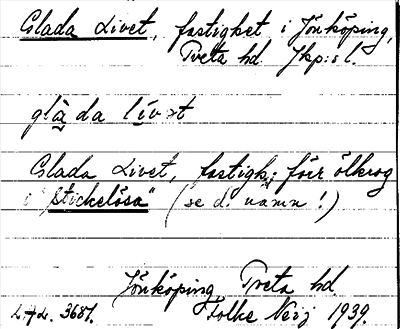 Glada Livet, fastighet i Jönköping,
Tveta hd. Jkp:s l.
glà da lív ət
Glada Livet, fastigh; förr ölkrog
i "Stickelösa" (se d. namn!)
Jönköping Tveta hd.
Folke 1939.
3687.